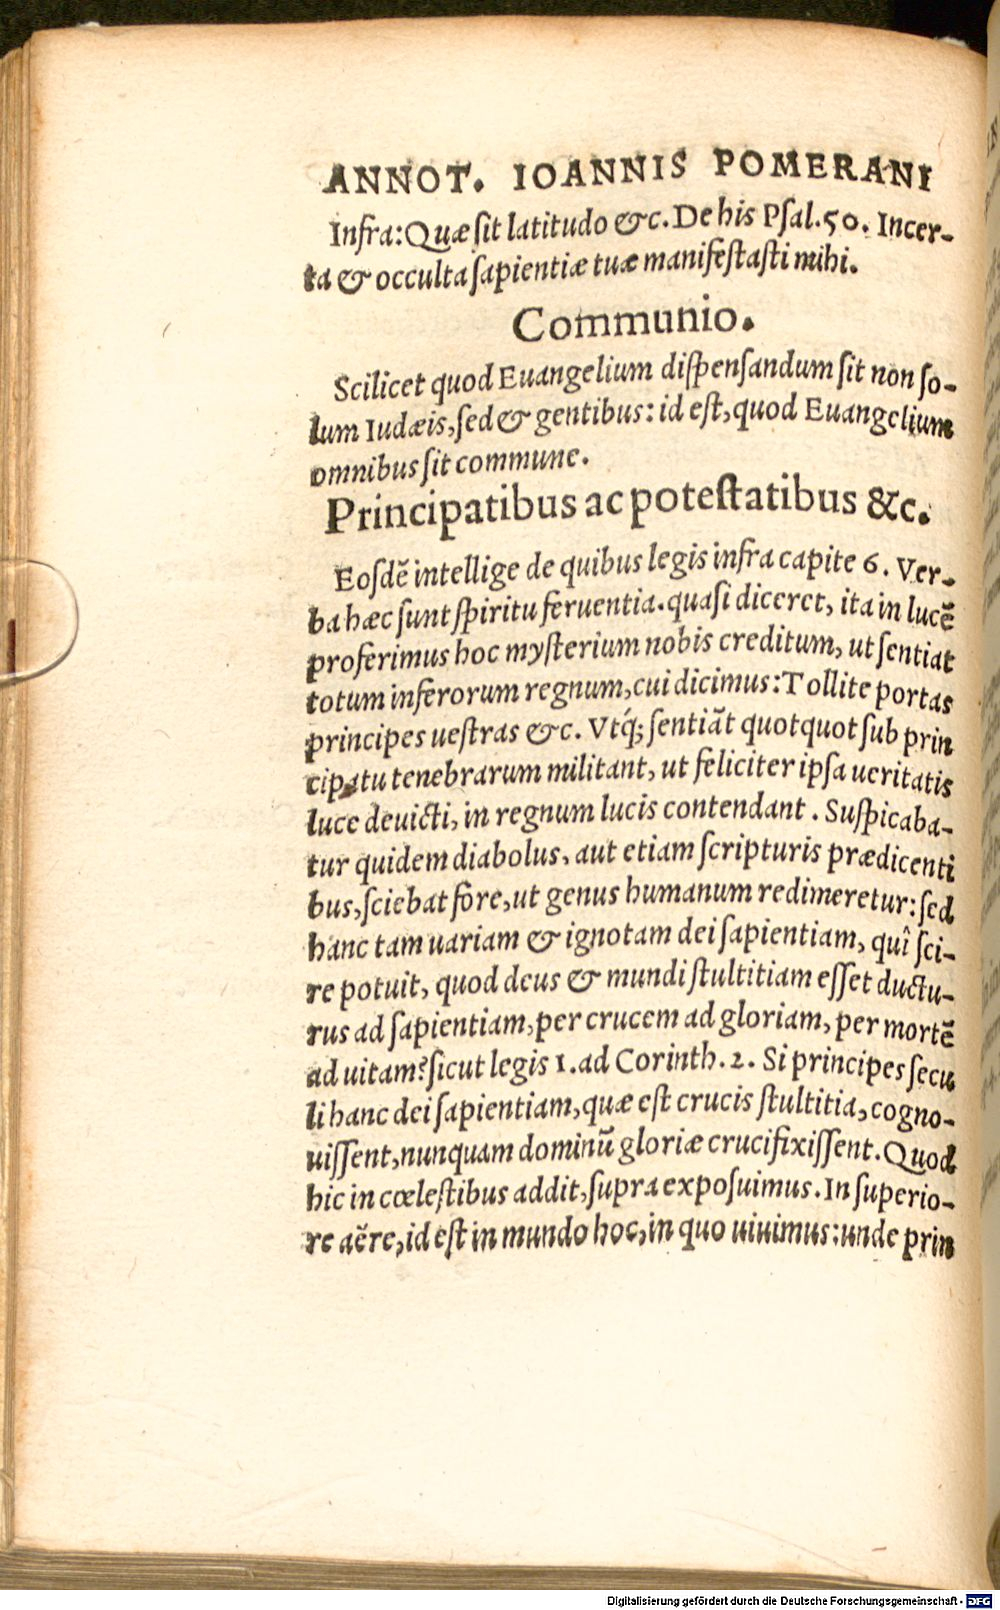 ANNOT. IOANNIS POMERANI
Infra: Quæ sit latitudo &c. De his Psal. 50. Incer-
ta & occulta sapientiæ tuæ manifestasti mihi.
Communio.
Scilicet quod Euangelium dispensandum sit non so-
lum Iudæis, sed & gentibus: id est, quod Euangelium
omnibus sit commune.
Principatibus ac potestatibus &c.
Eosdẽ intellige de quibus legis infra capite 6. Ver-
ba hæc sunt spiritu feruentia. quasi diceret, ita in lucẽ
proferimus hoc mysterium nobis creditum, ut sentiat
totum inferorum regnum, cui dicimus: Tollite portas
principes uestras &c. Vtq́; sentiãt quotquot sub prin
cipatu tenebrarum militant, ut feliciter ipsa ueritatis
luce deuicti, in regnum lucis contendant. Suspicaba-
tur quidem diabolus, aut etiam scripturis prædicenti
bus, sciebat fore, ut genus humanum redimeretur: sed
hanc tam uariam & ignotam dei sapientiam, quî sci-
re potuit, quod deus & mundi stultitiam esset ductu-
rus ad sapientiam, per crucem ad gloriam, per mortẽ
ad uitam? sicut legis 1. ad Corinth. 2. Si principes secu
li hanc dei sapientiam, quæ est crucis stultitia, cogno-
uissent, nunquam dominũ gloriæ crucifixissent. Quod
hic in cœlestibus addit, supra exposuimus. In superio-
re aëre, id est in mundo hoc, in quo uiuimus: unde prin
Digitalisierung gefördert durch die Deutsche Forschungsgemeinschaft - DFG